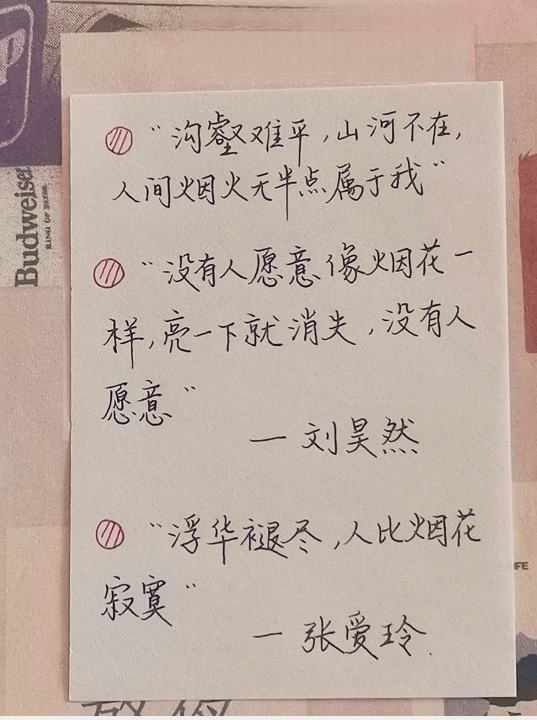 Budweiser
KING OF BEERS
“沟壑难平，山河不在，
人间烟火无半点属于我”
“没有人愿意像烟花一
样，亮一下就消失，没有人
愿意”
— 刘昊然
“浮华褪尽，人比烟花
寂寞”
— 张爱玲